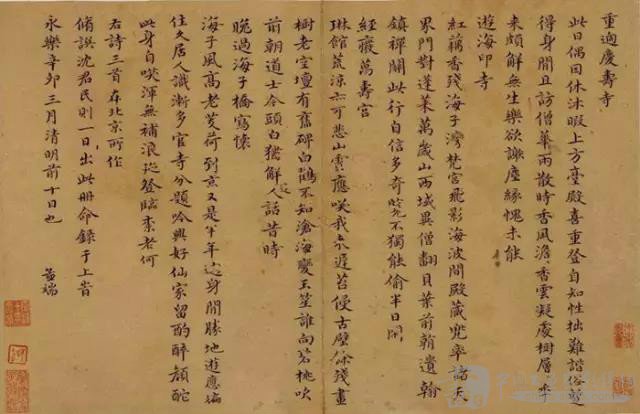 重過慶壽寺
此日偶因休沐暇上方臺殿喜重登自知性拙難諧俗蹔
得身閒且訪僧華雨散時香風澹香雲凝處樹層
來頗解無生樂欲謝塵緣愧未能
遊海印寺
紅藕香殘海子灣梵宮飛影海波間殿藏兜率諸天
界門對蓬萊萬歲山西域異僧翻貝葉前朝遺翰
鎮禪關此行自信多奇不獨能偷半日閒
經廢萬壽宮
琳館荒涼亦可悲山雲應咲我來遲苔侵古壁餘殘畫
樹老空壇有舊碑白鶴不知滄海變玉笙誰向碧桃吹
前朝道士今頭白猶解人話昔時
晚過海子橋寫懷
海子風高老芰荷到京又是半年過身閒勝地遊應徧
住久居人識漸多官寺分題吟興好仙家留酌醉顏酡
此身自咲渾無補浪跡登臨奈老何
右詩三首在北京所作
脩譔沈君民則一日出此冊命錄于上昔
永樂辛卯三月清明前十日也
孟端